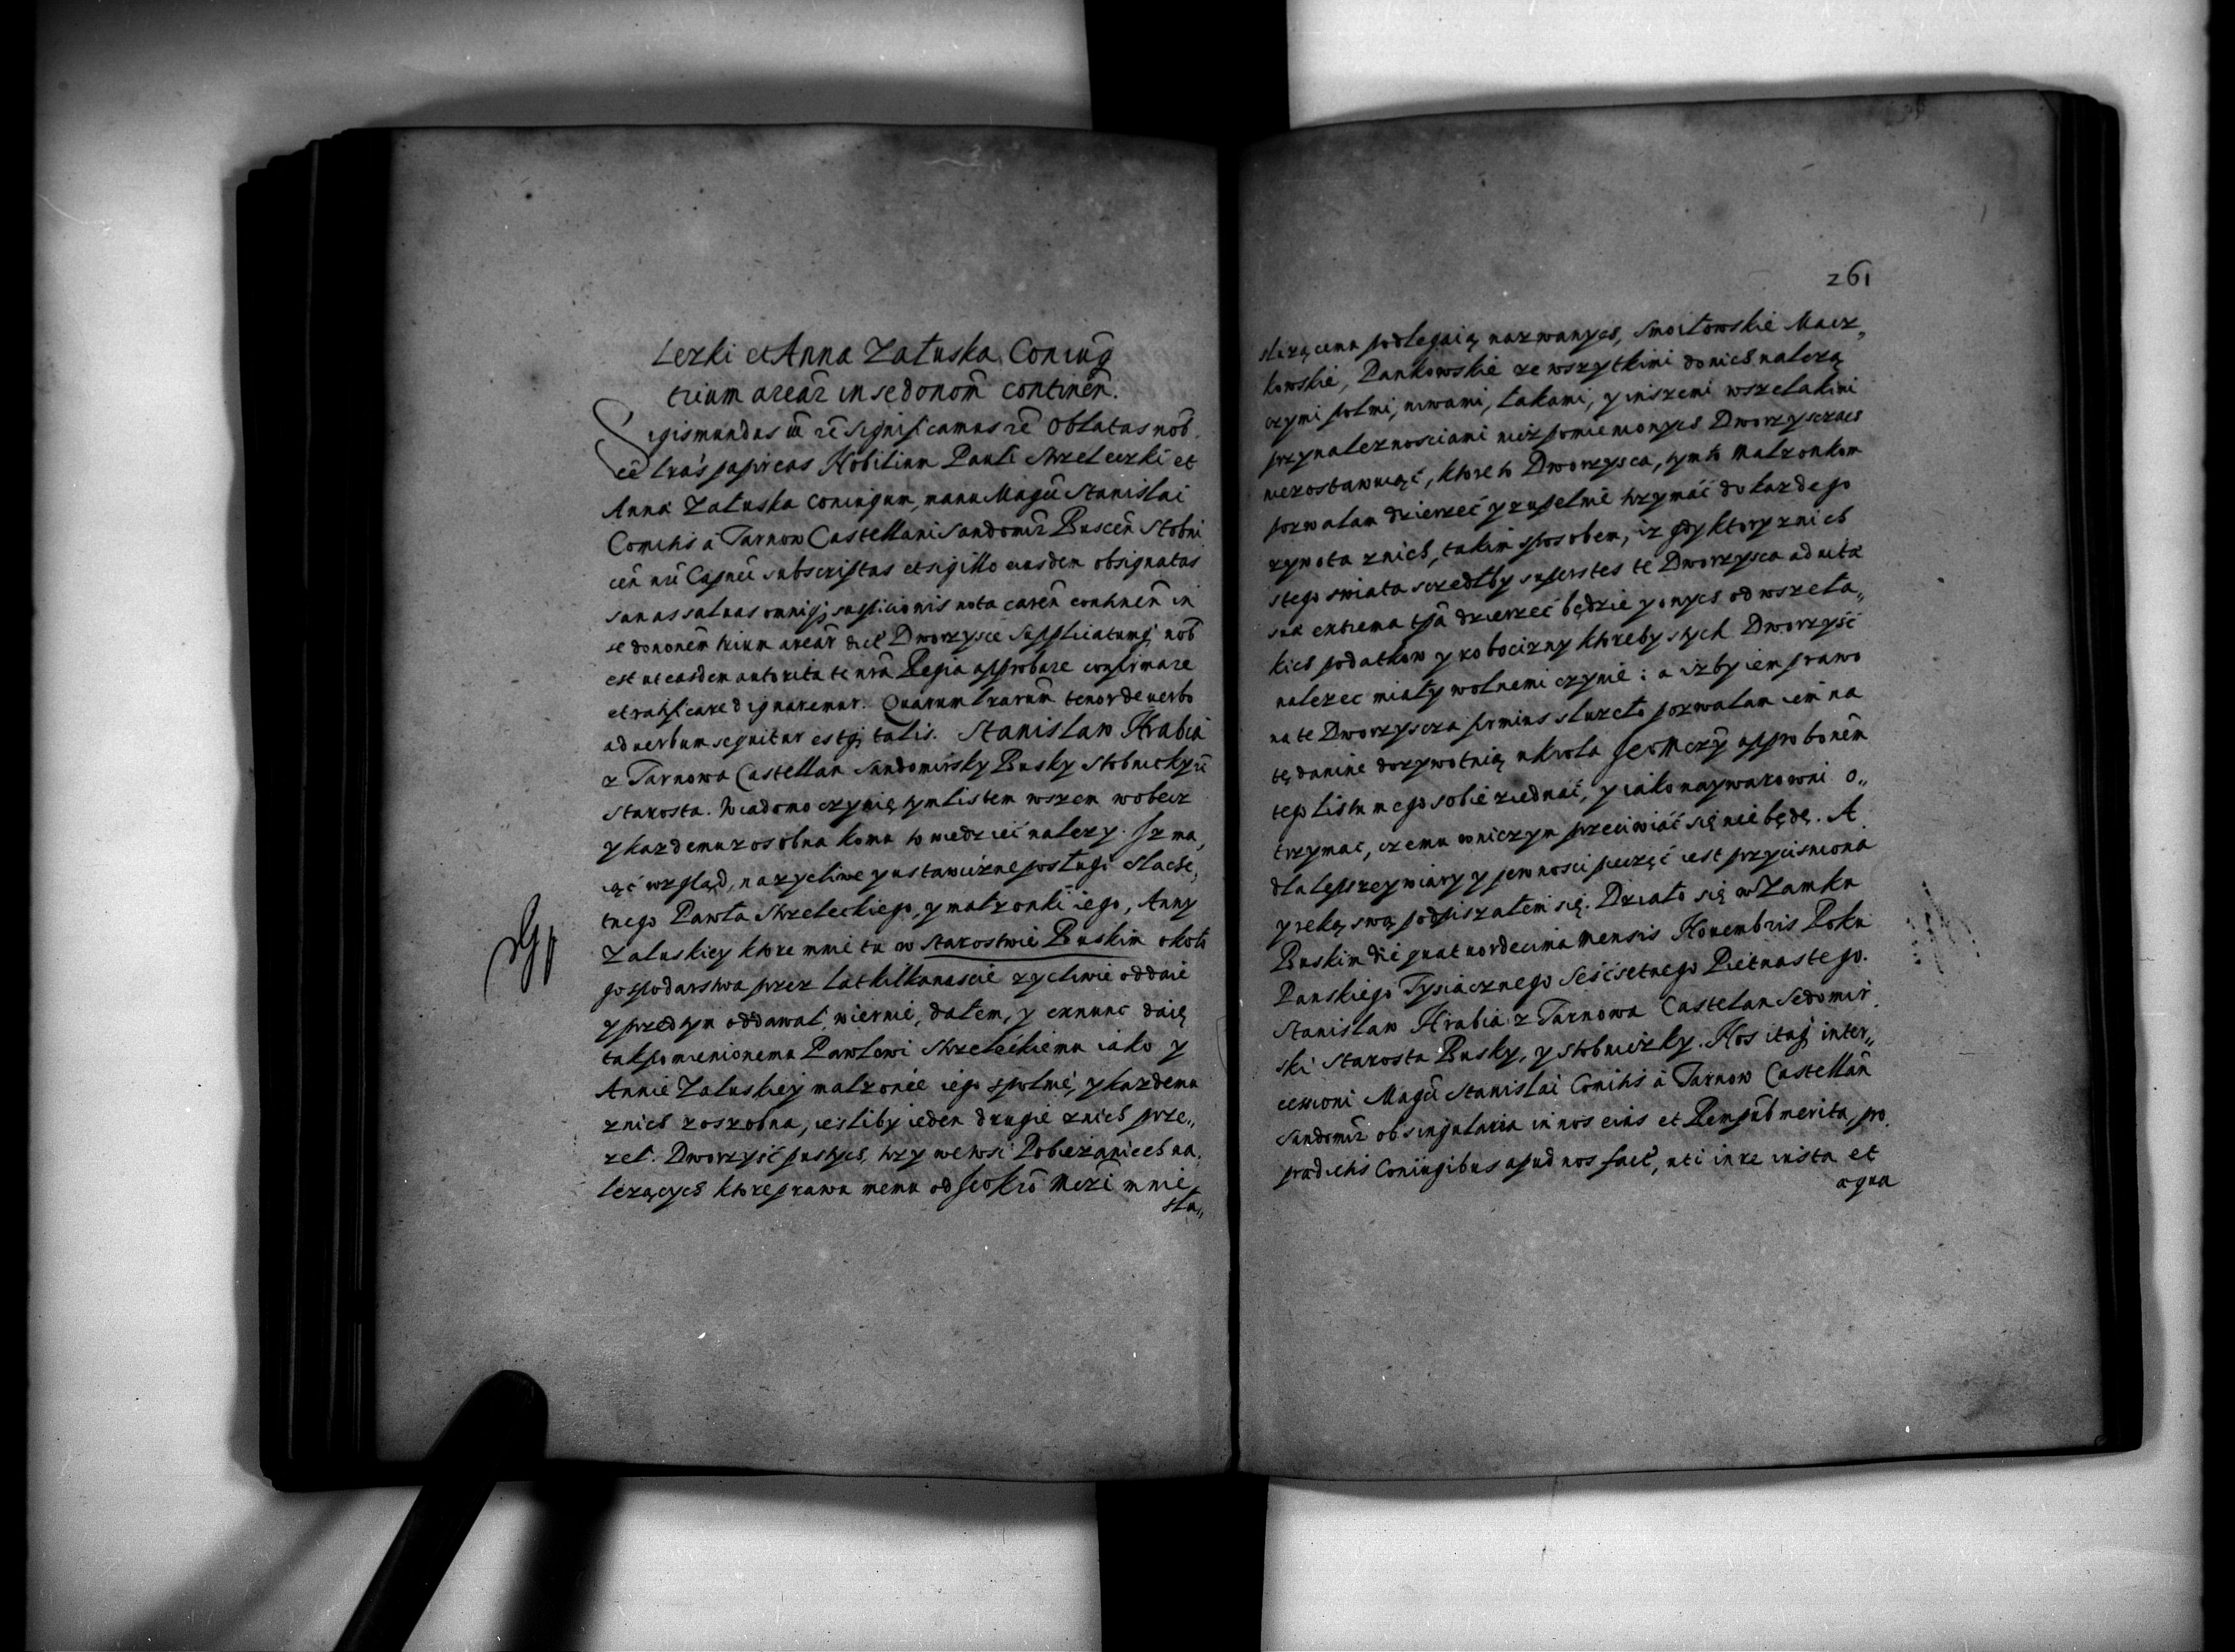 lezki et Anna Załuska Coniug
trium arear in se donom continen.
Sigismundus etc significamus etc Oblatas nob
eẽ lras papireas Nobilium Pauli Strzeleczki et
Anna Załuska coniugum, manu Magci Stanislai
Comitis à Tarnow Castellani Sandomir Buscen Stobni
cen nri Capnei subscriptas et sigillo eiusdem obsignatas
sanas saluas omniq; suspicionis nota caren continen in
se dononem trium arear dict Dworzysce Supplicatumq; nob
est ut easdem autoritate nra Regia approbare confirmare
et ratificare dignaremur. Quarum lrarum tenor de uerbo
ad uerbum sequitur estq; talis. Stanislaw Hrabia
z Tarnowa Castellan Sandomirsky Busky Stobnicky etc
Starosta. Wiadomo czynię tym listem wszem wobecz
y kazdemu zosobna komu to wiedzieć nalezy. Iz ma,
iąć wzgląd, na zycliwe y ustawiczne posługi slache,
tnego Pawła Strzeleckiego, y małzonki iego, Anny
Załuskiey ktore mnie tu w Starostwie Buskim około
gospodarstwa przez lat kilkanascie zycliwie oddaie
y przedtym oddawał wiernie, dałem, y exnunc daię
tak pomienionemu Pawłowi Strzeleckiemu iako y
Annie Załuskiey małzonce iego spolnie, y kazdemu
znich zoszobna, iesliby ieden drugie znich prze„
zeł. Dworzyść pustych, trzy we wsi Pobiezanicech na,
lezących ktore prawu memu od Ieo Kro Mczi mnie
słu„
261
słuzącemu podlegaią nazwanych, Smoitowskie Macz„
kowskie, Pankowskie ze wszytkimi do nich nalezą
czymi polmi, niwami, łakami, y inszemi wszelakimi
przynaleznosciami niż pomienionych Dworzysczach
niezostawuiąć, ktore to Dworzysca, tymto Małzonkom
pozwalam dzierzeć y zupelnie trzymáć do kazdego
zywota znich, takim sposobem, iz gdy ktory znich
stego swiata szedłby superstes te Dworzysca ad uita
sua extrema tpa dzierzeć będzie y onych od wszela„
kich podatkow y robocizny ktoreby stych Dworzyść
nalezec miały wolnemi czynię: a izby iem prawo
na te Dworzyscza firmius słuzeło pozwalam iem na
tę danine dozywotnią u krola Ieo Mczy approbonem
tego listu mego sobie ziednać, y iako naywarowni o„
trzymac, czemu w niczym przeciwiáć się nie będę. A
dla lepszey wiary y pewnosci pieczęć iest przycisniona
y ręką swą podpiszałem się. Działo się w Zamku
Buskim die quatuordecima mensis Nouembris Roku
Panskiego Tysiacznego Seśćsetnego Pietnastego.
Stanisław Hrabia z Tarnowa Castelan Sędomir
ski Starosta Busky, y Stobniczky. Nos itaq; inter„
cessioni Magci Stanislai Comitis à Tarnow Castellan
Sandomir ob singularia in nos eius et Rempub merita, pro
prædictis Coniugibus apud nos fact, uti in re iusta et
æqua